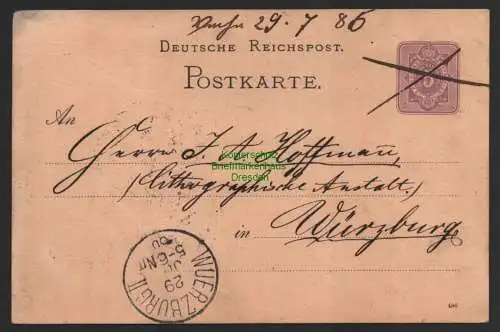 Vacha 29. 7 86
DEUTSCHE REICHSPOST.
POSTKARTE.
5
An
Herrn J. A. Hoffmann,
(Lithographische Anstalt.)
in Würzburg
Komerschutz
Briefmarkenhaus
Dresden
WUERZBURG II.
29
JUL
5-6 Nm